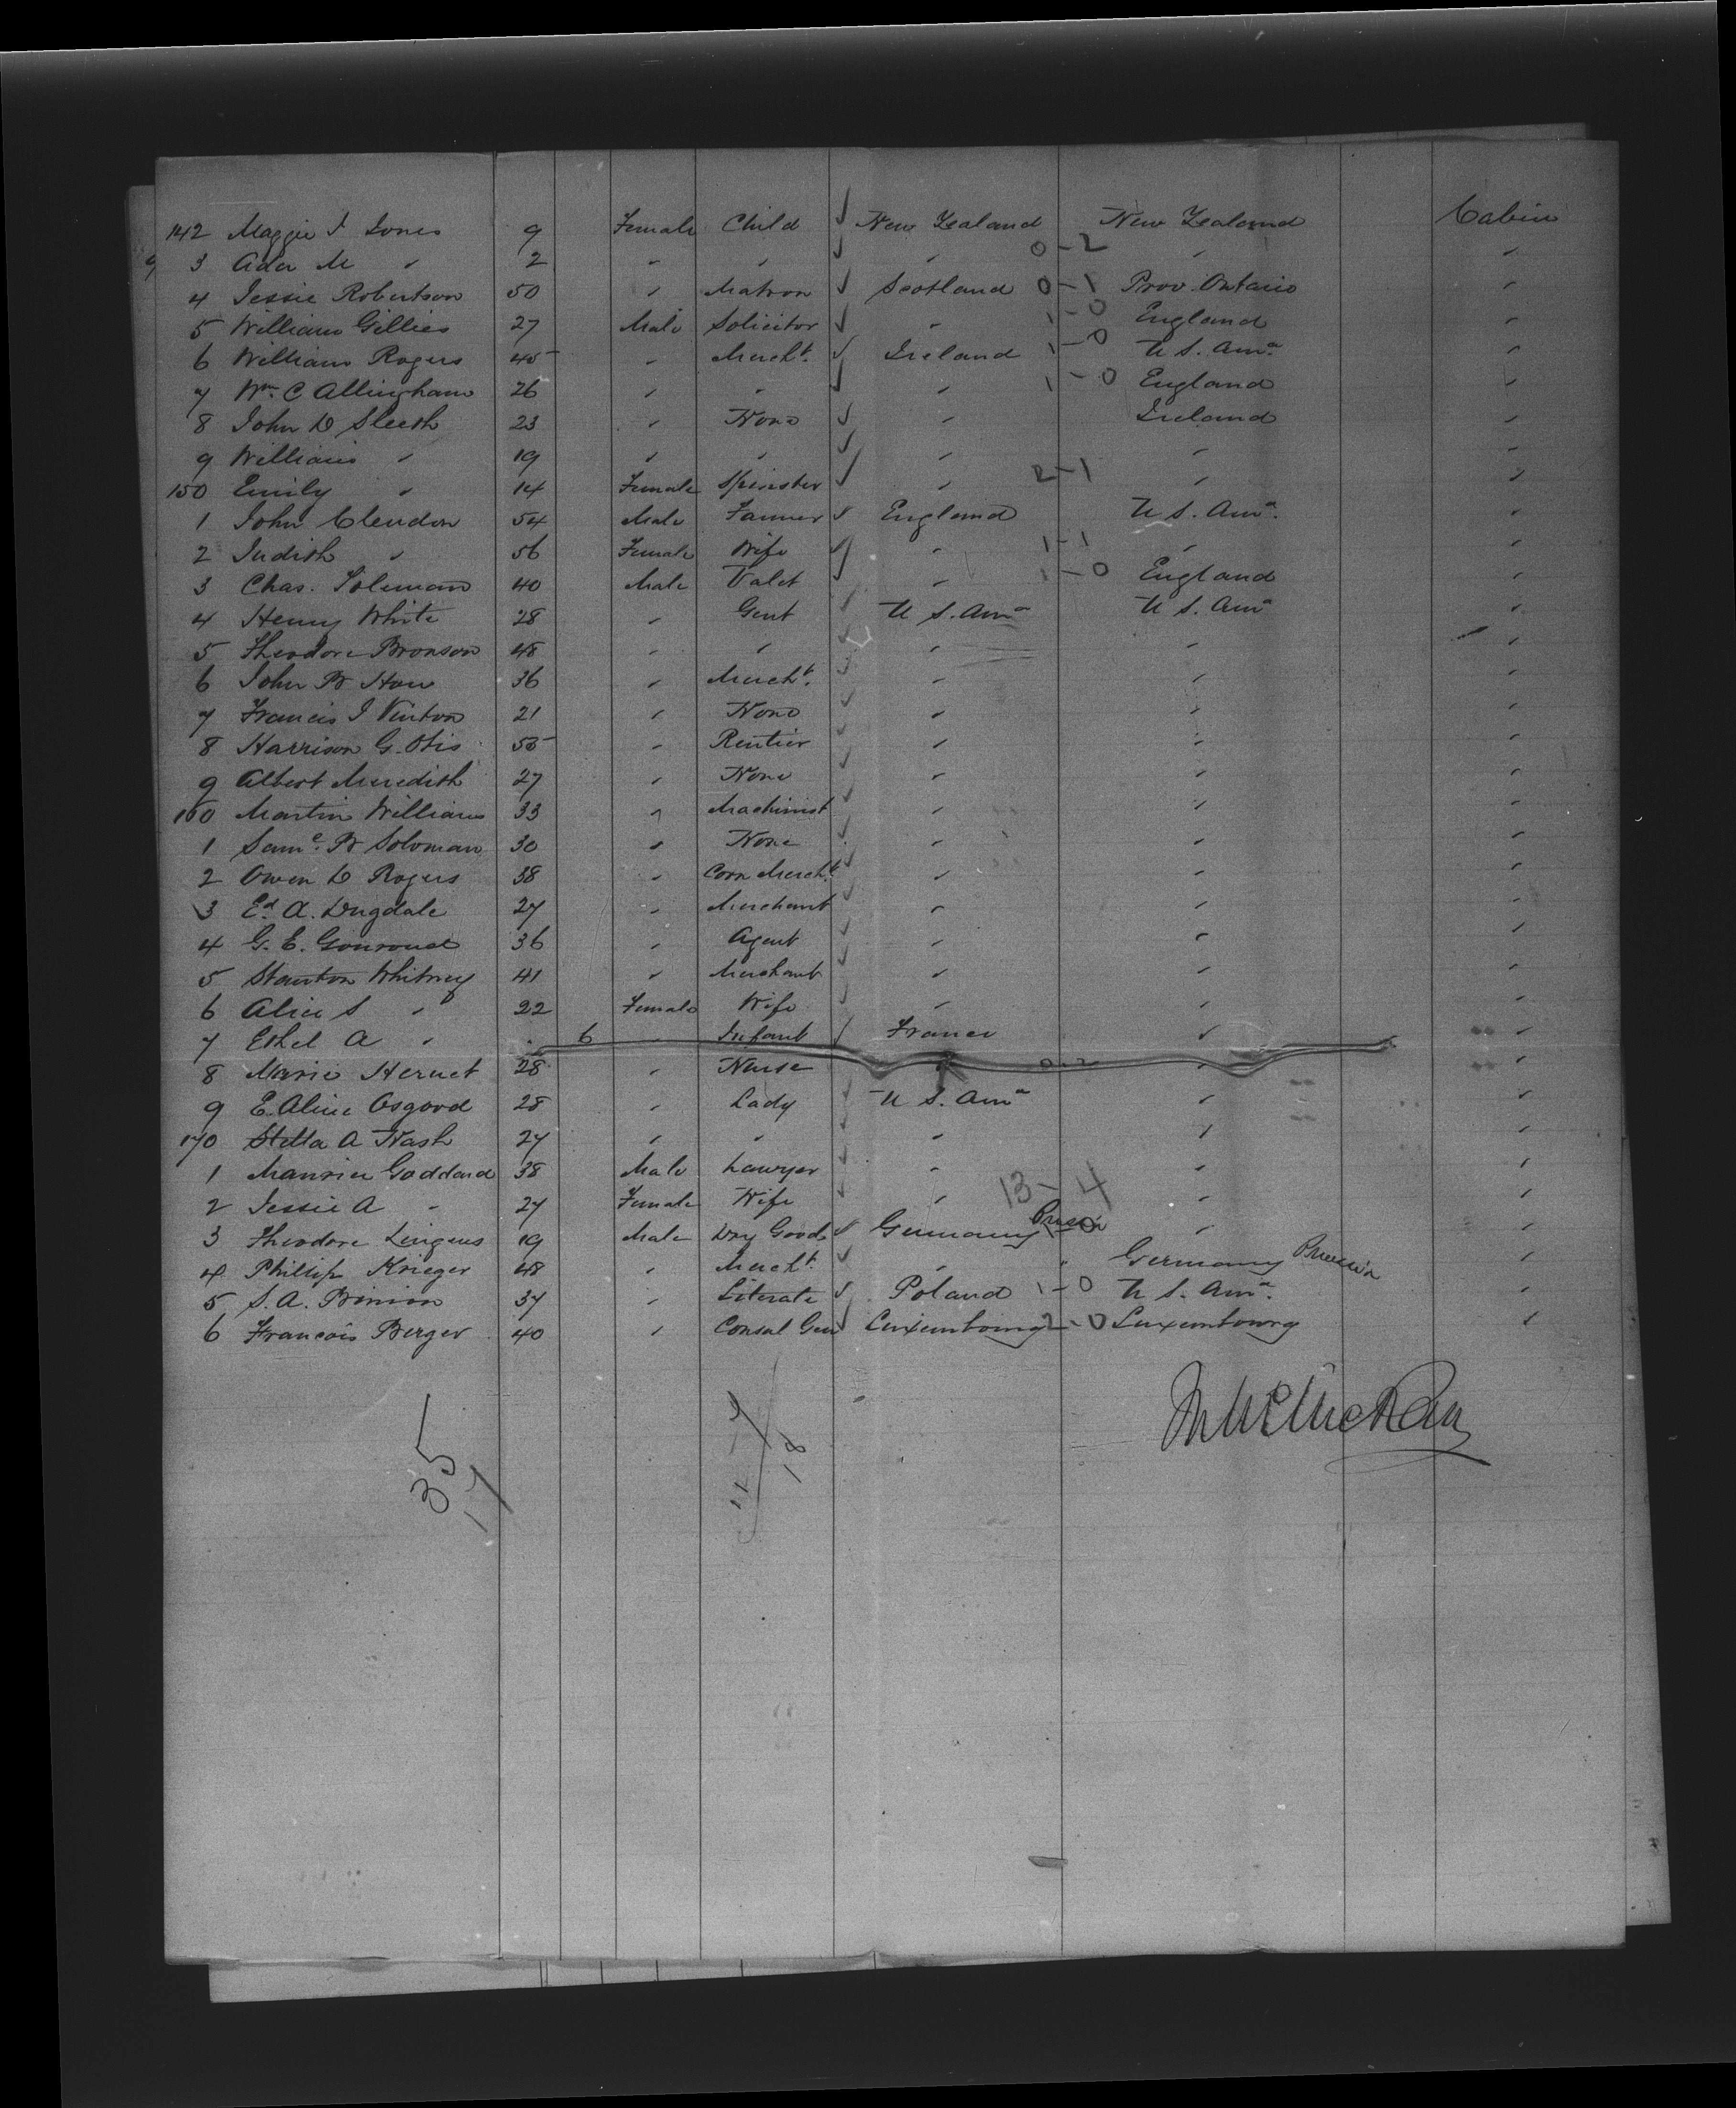 142 Maggie J Jones 9 Female Child ✓ New Zealand New Zealand Cabin
3 Ada M " 2 " " ✓ " 0-2 " "
4 Jessie Robertson 50 " Matron ✓ Scotland 0-1 Prov. Ontario "
5 William Gillies 27 Male Solicitor ✓ " 1-0 England "
6 William Rogers 45 " Mercht. ✓ Ireland 1-0 U S. Ama "
7 Wm. C Allingham 26 " " ✓ " 1-0 England "
8 John D Sleeth 23 " None ✓ " Ireland "
9 William " 19 " " ✓ " " "
150 Emily " 14 Female Spinster ✓ " 2-1 " "
1 John Clendon 54 Male Farmer ✓ England U S. Ama "
2 Judith " 56 Female Wife ✓ " 1-1 " "
3 Chas. Soleman 40 Male Valet ✓ " 1-0 England "
4 Henry White 28 " Gent ✓ U S. Ama U S. Ama "
5 Theodore Bronson 48 " " ✓ " " "
6 John B How 36 " Mercht. ✓ " " "
7 Francis J Vinton 21 " None ✓ " " "
8 Harrison G. Otis 55 " Rentier ✓ " " "
9 Albert Meredith 27 " None ✓ " " "
160 Martin Williams 33 " Machinist ✓ " " "
1 Saml. B Soloman 30 " None ✓ " " "
2 Owen D Rogers 38 " Corn Mercht. ✓ " " "
3 Ed. A. Dugdale 27 " Merchant ✓ " " "
4 G. E. Gouroud 36 " Agent ✓ " " "
5 Stanton Whitney 41 " Merchant ✓ " " "
6 Alice S " 22 Female Wife ✓ " " "
7 Ethel A " 6 " Infant ✓ France " "
8 Marie Hernet 28 " Nurse " 0-2 " "
9 E. Aline Osgood 28 " Lady ✓ U S. Ama " "
170 Stella A Nash 27 " " ✓ " " "
1 Maurice Goddard 38 Male Lawyer ✓ " " "
2 Jessie A " 27 Female Wife ✓ " 13-4 " "
3 Theodore Lingens 19 Male Dry Goods ✓ Germany Prussia " "
4 Phillip Krieger 48 " Mercht. ✓ " " Germany Prussia "
5 S. A. Binion 37 " Literate ✓ Poland 1-0 U S. Ama. "
6 Francois Berger 40 " Consul Gen ✓ Luxembourg 2-0 Luxembourg "
35
17
18